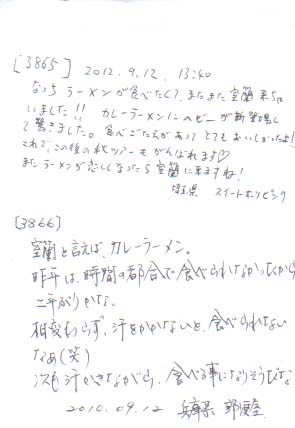 [3865] 2012.9.12. 13:40
なっちラーメンが食べたくて、またまた室蘭来ちゃ
いました!! カレーラーメンに が新登場し
て驚きました。食べごたえがあってとてもおいしかったよ!
これで、この後の秋ツアーもがんばれます♡
またラーメンが恋しくなったら室蘭に来ますね!
埼玉県 スイートホリピンク
[3866]
室蘭と言えば、カレーラーメン。
昨年は、時間の都合で食べられなかったから
二年ぶりかな。
相変わらず、汗をかかないと、食べられない
なぁ(笑)
次も汗かきながら、食べる事になりそうだな
2010.09.12 兵庫県